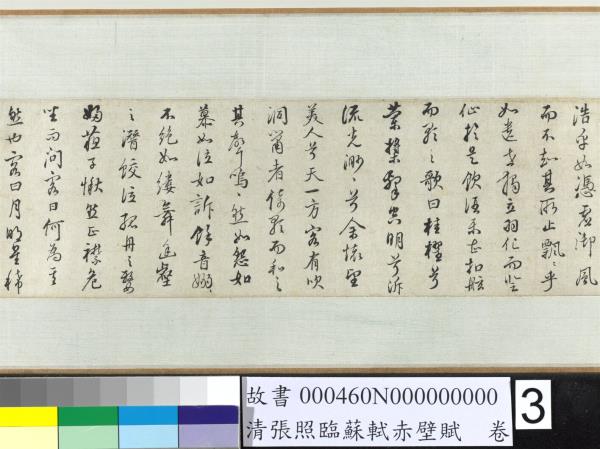 浩乎如憑虛御風
而不知其所止飄飄乎
如遺世獨立羽化而登
仙於是飲酒樂甚扣舷
而歌之歌曰桂櫂兮
蘭槳擊空明兮泝
流光渺渺兮余懷望
美人兮天一方客有吹
洞簫者倚歌而和之
其聲嗚嗚然如怨如
慕如泣如訴餘音嫋嫋
不絕如縷舞幽壑
之潛蛟泣孤舟之嫠
婦蘇子愀然正襟危
坐而問客曰何為其
然也客曰月明星稀
故書 000460N000000000
清張照臨蘇軾赤壁賦 卷
3